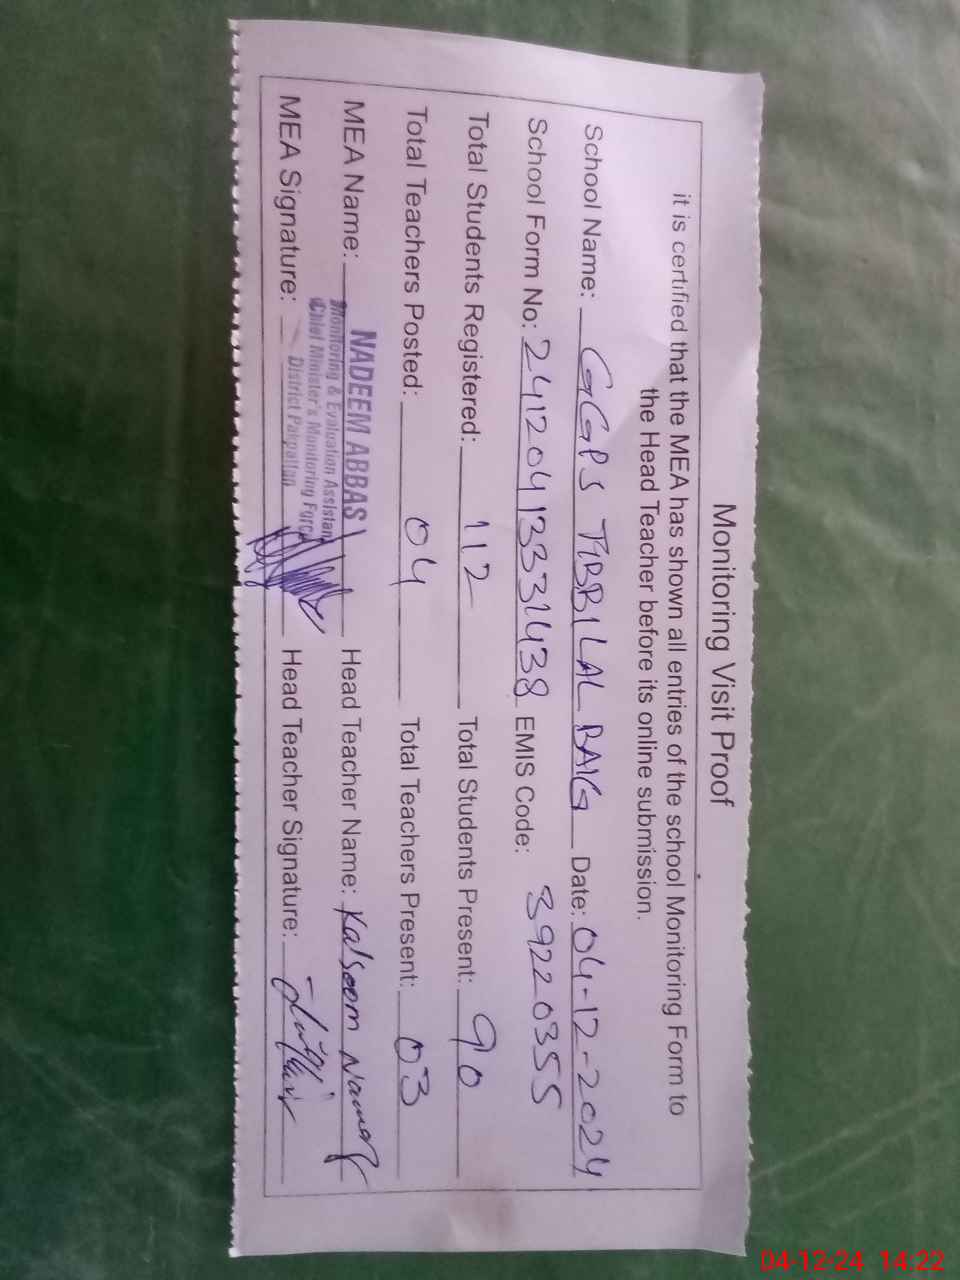 Monitoring Visit Proof
it is certified that the MEA has shown all entries of the school Monitoring Form to
the Head Teacher before its online submission.
School Name: GGPS TIBBI LAL BAIG Date: 04-12-2024
School Form No: 24120413331438 EMIS Code: 39220355
Total Students Registered: 112 Total Students Present: 90
Total Teachers Posted: 04 Total Teachers Present: 03
MEA Name: NADEEM ABBAS Head Teacher Name: Kalsoom
Monitoring & Evaluation Assistan
Chief Minister's Monitoring Force
District Pakpattan
MEA Signature: Head Teacher Signature:
04-12-24 14:22